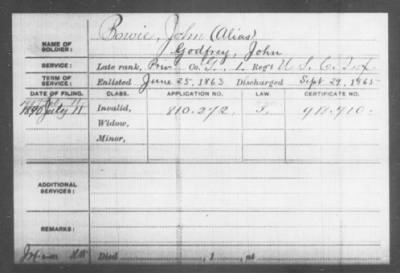 Bowie, John (Alias)
NAME OF SOLDIER: Godfrey, John
SERVICE: Late rank, Prv Co. G, 1, Reg't U. S. C. Inf.
TERM OF SERVICE: Enlisted June 25, 1863 Discharged Sept 29, 1865
DATE OF FILING. CLASS. APPLICATION NO. LAW. CERTIFICATE NO.
1890 July 11 Invalid, 810.272, 911.710
Widow,
Minor,
ADDITIONAL SERVICES:
REMARKS:
Died , 1 , at